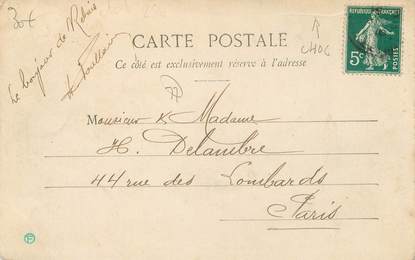 30€
Le bonjour de Rebais
H. Poullain
CARTE POSTALE
Ce côté est exclusivement réservé à l'adresse
RÉPUBLIQUE FRANÇAISE
POSTES
5c
77
Monsieur & Madame
H. Delambre
44 rue des Lombards
Paris